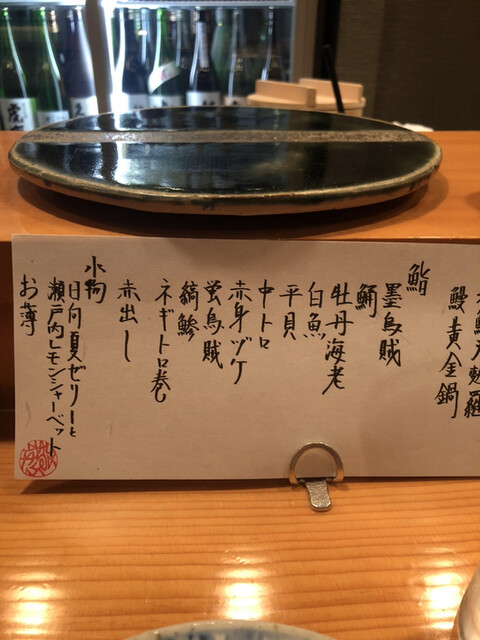 天麩羅
鰻黄金鍋
鮨
墨烏賊
鯒
牡丹海老
白魚
平貝
中トロ
赤身ヅケ
蛍烏賊
縞鯵
ネギトロ巻
赤出し
水物
日向夏ゼリーと
瀬戸内レモンシャーベット
お薄